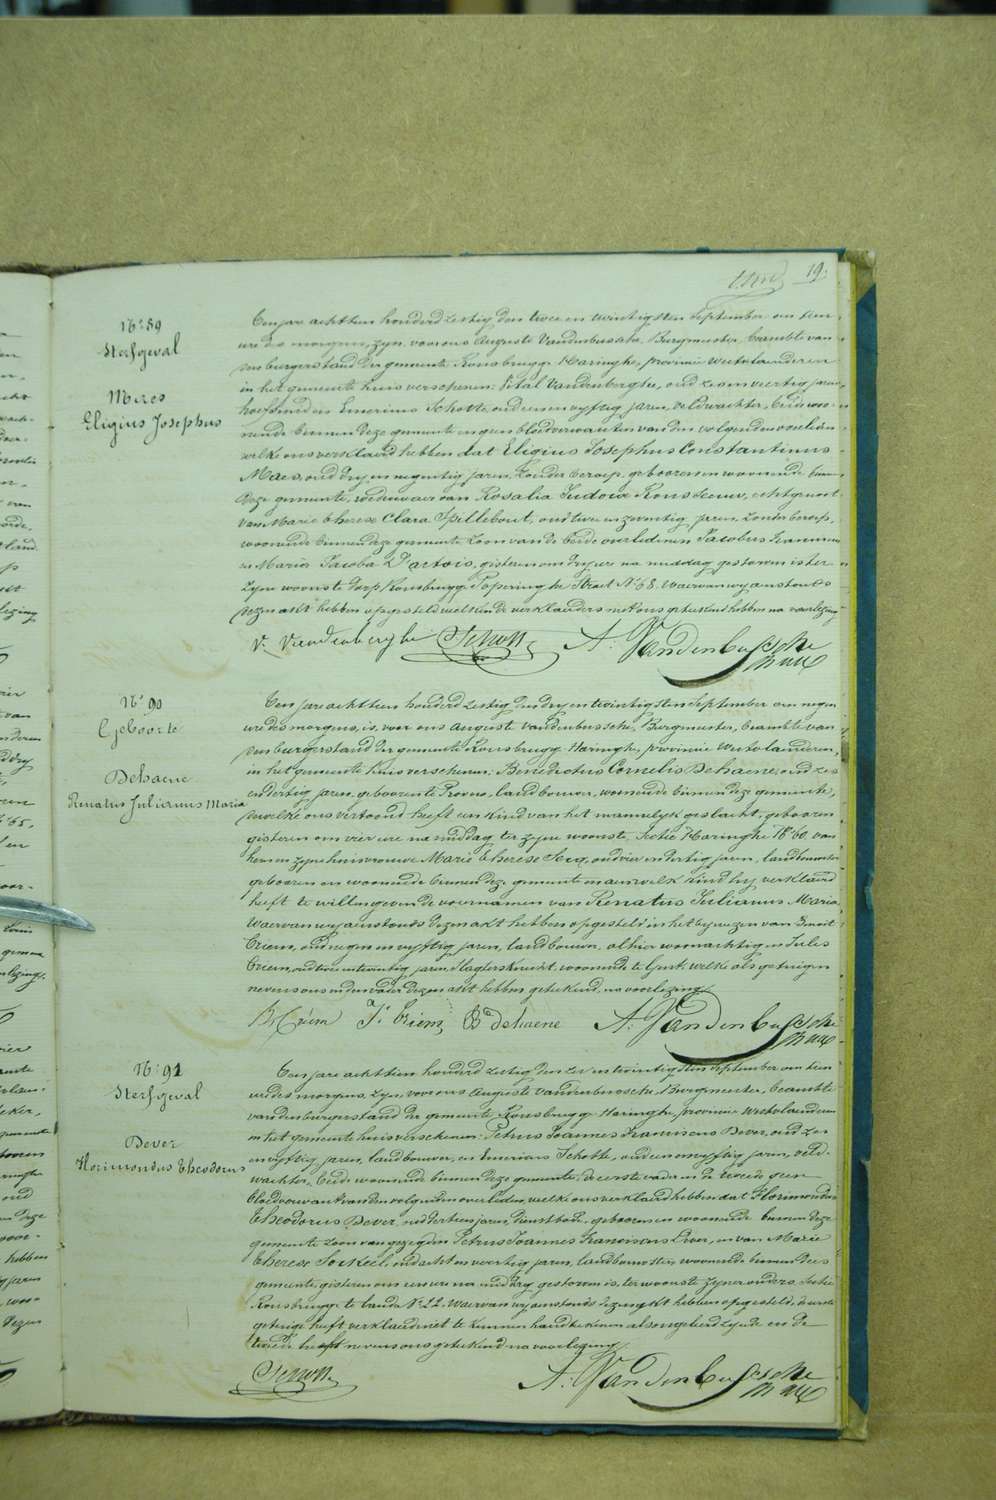 19.
N° 89
Sterfgeval
Maes
Eligius Josephus
Ten jare achttien honderd zestig den twee en twintigsten September om tien
ure des morgens, zyn voor ons Auguste Vandenbussche, Burgmeester, beambte van
den burgerstand der gemeente Rousbrugge Haringhe, provincie Westvlaenderen
in het gemeente huis verschenen: Vital Vandenberghe, oud zes en veertig jaren,
hoefsmid en Emerinus Schotte oud een en vyftig jaren, veldwachter, beide woo-
nende binnen deze gemeente en geen bloedverwanten van den volgenden overleden
welke ons verklaard hebben dat Eligius Josephus Constantinus
Maes, oud dry en negentig jaren, zonder beroep, geboren en woonende binnen
deze gemeente, weduwaer van Rosalia Ludovica Rousseeuw, echtgenoot
van Marie Therese Clara Spillebout, oud twee en zeventig jaren, zonder beroep,
woonende binnen deze gemeente Zoon van de beide overledenen Jacobus Franciscus
en Maria Jacoba Dartois, gisteren om dry ure na middag gestorven is ter
zyne woonste dorp Rousbrugge Poperinghe Straet N° 68. Waervan wy aenstonds
dezen akt hebben opgesteld welken de verklaerders met ons geteekend hebben na voorlezing
V. Vandenberghe Schotte A. Vandenbussche
N° 90
Geboorte
Dehaene
Renatus Julianus Maria
Ten jare achttien honderd zestig den dry en twintigsten September om negen
ure des morgens, is, voor ons Auguste Vandenbussche, Burgmeester, beambte van
den burgerstand der gemeente Rousbrugge Haringhe, provincie Westvlaenderen,
in het gemeente huis verschenen: Benedictus Cornelis Dehaene, oud zes
en dertig jaren, geboren te Proven, landbouwer, woonende binnen deze gemeente,
dewelke ons vertoond heeft een kind van het mannelyk geslacht, geboren
gisteren om vier ure na middag, ter zyne woonste, Sectie Haringhe N° 60, van
hem en zyne huisvrouwe Marie Therese Secq, oud vier en dertig jaren, landbouwster
geboren en woonende binnen deze gemeente en aen welk kind hy verklaerd
heeft te willen geven de voornamen van Renatus Julianus Maria.
Waervan wy aenstonds dezen akt hebben opgesteld in het bywezen van Benoit
Criem, oud negen en vyftig jaren, landbouwer, alhier woonachtig en Jules
Criem, oud twee en twintig jaren, Slagterskneckt, woonende te Gent, welke als getuigen
nevens ons en den vader dezen akt hebben geteekend, na voorlezing
B. Criem J. Criem B. Dehaene A. Vandenbussche
N° 91
Sterfgeval
Dever
Florimondus Theodorus
Ten jare achttien honderd zestig den zes en twintigsten September om tien
ure des morgens, zyn, voor ons Auguste Vandenbussche, Burgmeester, beambte
van den burgerstand der gemeente Rousbrugge Haringhe, provincie Westvlaenderen
in het gemeente huis verschenen: Petrus Joannes Franciscus Dever, oud zes
en vyftig jaren, landbouwer, en Emerinus Schotte, oud een en vyftig jaren, veld-
wachter, beide woonende binnen deze gemeente, de eerste vader en de tweede geen
bloedverwant van den volgenden overleden, welke ons verklaerd hebben dat Florimondus
Theodorus Dever, oud dertien jaren, dienstbode, geboren en woonende binnen deze
gemeente zoon van gezegden Petrus Joannes Franciscus Dever, en van Marie
Therese Soekeel, oud acht en veertig jaren, landbouwster, woonende binnen deze
gemeente, gisteren om een ure na middag gestorven is, ter woonste zyner ouders, Sectie
Rousbrugge te lande N° 22. Waervan wy aenstonds dezen akt hebben opgesteld, de eerste
getuige heeft verklaerd niet te kunnen handteekenen als ongeleerd zynde en de
tweede heeft nevens ons geteekend na voorlezing
Schotte A. Vandenbussche